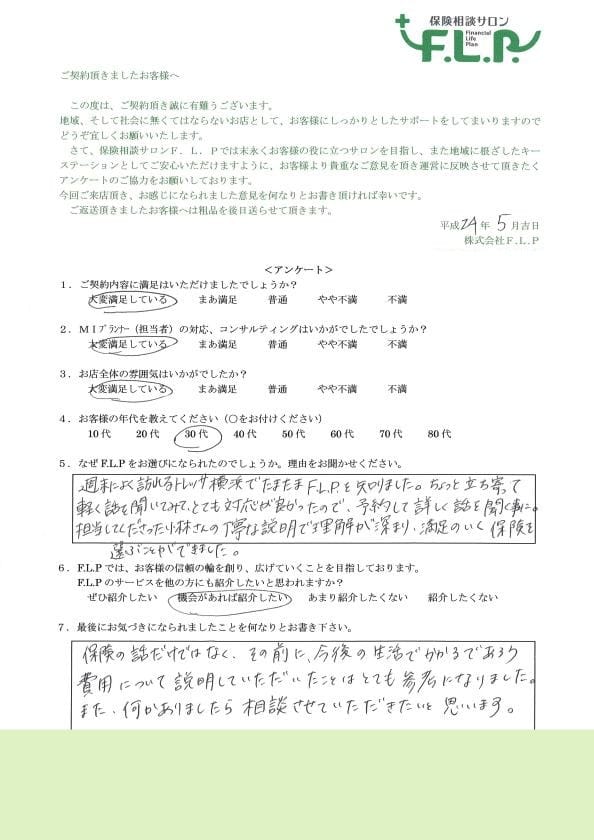 保険相談サロン
F.L.P.
Financial
Life
Plan
ご契約頂きましたお客様へ
この度は、ご契約頂き誠に有難うございます。
地域、そして社会に無くてはならないお店として、お客様にしっかりとしたサポートをしてまいりますので
どうぞ宜しくお願いいたします。
さて、保険相談サロンF．L．Pでは末永くお客様の役に立つサロンを目指し、また地域に根ざしたキー
ステーションとしてご安心いただけますように、お客様より貴重なご意見を頂き運営に反映させて頂きたく
アンケートのご協力をお願いしております。
今回ご来店頂き、お感じになられました意見を何なりとお書き頂ければ幸いです。
ご返送頂きましたお客様へは粗品を後日送らせて頂きます。
平成24年 5月吉日
株式会社F.L.P
＜アンケート＞
1．ご契約内容に満足はいただけましたでしょうか？
大変満足している まあ満足 普通 やや不満 不満
2．MIプランナー（担当者）の対応、コンサルティングはいかがでしたでしょうか？
大変満足している まあ満足 普通 やや不満 不満
3．お店全体の雰囲気はいかがでしたか？
大変満足している まあ満足 普通 やや不満 不満
4．お客様の年代を教えてください（○をお付けください）
10代 20代 30代 40代 50代 60代 70代 80代
5．なぜF.L.Pをお選びになられたのでしょうか。理由をお聞かせください。
週末によく訪れるトレッサ横浜でたまたまF.L.P.を知りました。ちょっと立ち寄って
軽く話を聞いてみて、とても対応が良かったので、予約して詳しく話を聞く事に。
担当してくださった小林さんの丁寧な説明で理解が深まり、満足のいく保険を
選ぶことができました。
6．F.L.Pでは、お客様の信頼の輪を創り、広げていくことを目指しております。
F.L.Pのサービスを他の方にも紹介したいと思われますか？
ぜひ紹介したい 機会があれば紹介したい あまり紹介したくない 紹介したくない
7．最後にお気づきになられましたことを何なりとお書き下さい。
保険の話だけではなく、その前に、今後の生活でかかるであろう
費用について説明していただいたことはとても参考になりました。
また、何かありましたら相談させていただきたいと思います。